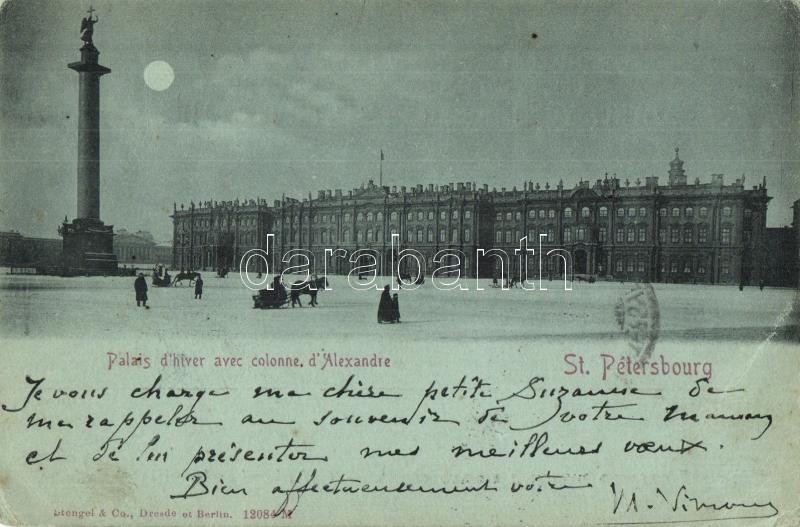 darabanth
Palais d'hiver avec colonne d'Alexandre
St. Pétersbourg
Je vous charge ma chère petite Suzanne de
me rappeler au souvenir de votre Maman
et de lui présenter mes meilleurs vœux.
Bien affectueusement votre
Stengel & Co., Dresde et Berlin. 12084 M